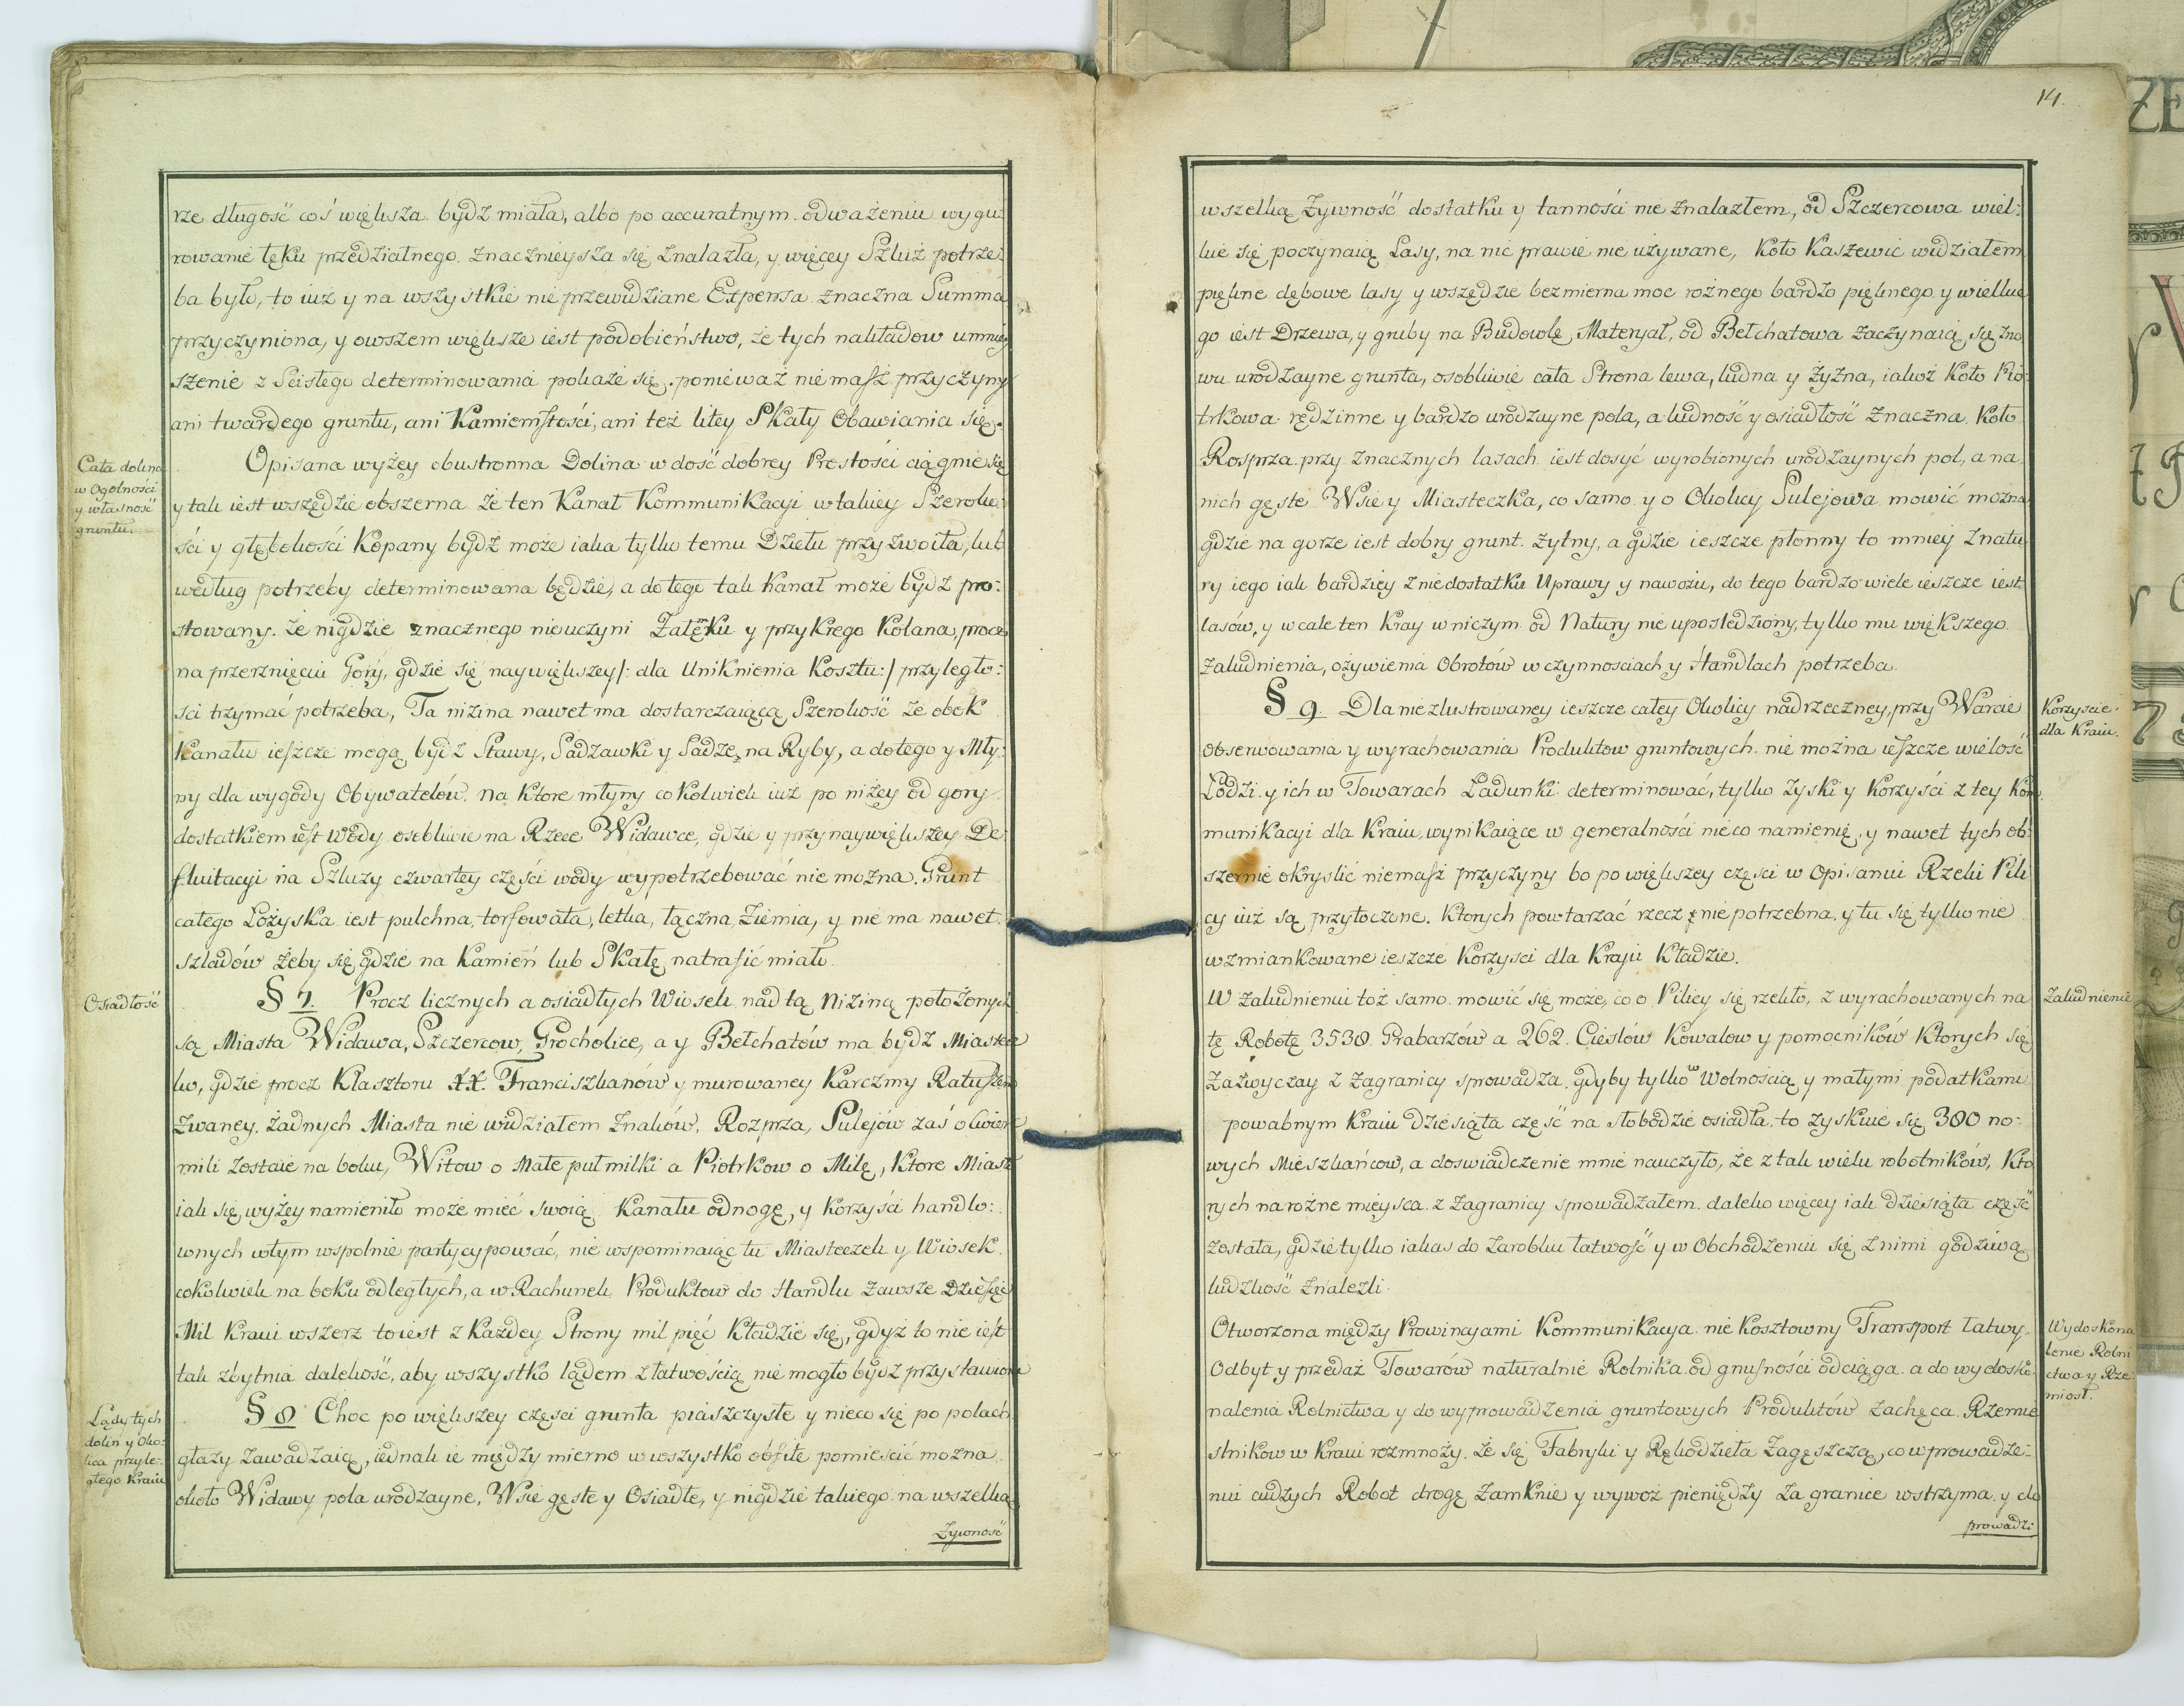 rze długość coś większa bydź miała, albo po accuratnym odważeniu wygu:
rowanie łęku przedziałnego znacznieysza się znalazła, y więcey Szluż potrze:
ba było, to iuż y na wszystkie nie przewidziane Expensa znaczna Summa
przyczyniona, y owszem większe iest podobieństwo, że tych nakładow umniey
szenie z Scisłego determinowania pokaże się, ponieważ niemasz przyczyny
ani twardego gruntu, ani Kamienistości, ani też litey Skały Obawiania się.
Cała dolina
w Ogolności
y własność
gruntu.
Opisana wyżey obustronna Dolina w dość dobrey Prostości ciągnie się
y tak iest wszędzie obszerna że ten Kanał Kommunikacyi w takiey Szeroko:
ści y głębokości Kopany bydź może iaka tylko temu Dziełu przyzwoita, lub
według potrzeby determinowana będzie, a do tego tak Kanał może bydź pro:
stowany że nigdzie znacznego nieuczyni Załęku y przykrego Kolana, procz
na przerznięciu Gory, gdzie się naywiększey /: dla Uniknienia Kosztu :/ przyległo:
ści trzymać potrzeba, Ta nizina nawet ma dostarczaiącą Szerokość że obok
Kanału ieszcze mogą bydź Stawy, Sadzawki y Sadze na Ryby, a do tego y Mły:
ny dla wygody Obywatelów na Ktore młyny cokolwiek iuż po niżey od gory
dostatkiem iest Wody osobliwie na Rzece Widawce, gdzie y przy naywiększey De
fluitacyi na Szluzy czwartey części wody wypotrzebować nie można. Grunt
całego Łożyska iest pulchna, torfowata, letka, łączna, Ziemia, y nie ma nawet
szladów żeby się gdzie na Kamień lub Skałę natrafić miało.
Osiadłość
§ 7. Procz licznych a osiadłych Wiosek nad tą Niziną położonych
są Miasta Widawa, Szczercow, Grocholice, a y Bełchatów ma bydź Miastecz
ko, gdzie procz Klasztoru XX. Franciszkanów y murowaney Karczmy Ratuszem
zwaney, żadnych Miasta nie widziałem Znaków, Rozprza, Sulejów zaś o cwierć
mili zostaie na boku, Witow o Małe pułmilki a Piotrkow o Milę, Ktore Miasta
iak się wyżey namieniło może mieć swoią Kanału odnogę, y Korzyści handlo:
wnych w tym wspolnie partycypować, nie wspominaiąc tu Miasteczek y Wiosek
cokolwiek na boku odległych, a w Rachunek Produktow do Handlu zawsze Dziesięć
Mil Kraiu wszerz toiest z Każdey Strony mil pięć Kładzie się, gdyż to nie iest
tak zbytnia dalekość, aby wszystko lądem z łatwością nie mogło bydź przystawione
Lądy tych
dolin y Oko:
lica przyle:
głego Kraiu
§ 8. Choc po większey części grunta piaszczyste y nieco się po polach
głazy zawadzaią, iednak ie między mierno w wszystko obfite pomieścić można
około Widawy pola urodzayne, Wsie gęste y Osiadłe, y nigdzie takiego na wszelką
Zywność
14.
wszelką Zywność dostatku y tanności nie znalazłem, od Szczercowa wiel:
kie się poczynaią Lasy, na nic prawie nie używane, Koło Kaszewic widziałem
piękne dębowe lasy y wszędzie bezmierna moc rożnego bardzo pięknego y wielkie
go iest Drzewa, y gruby na Budowlę Materyał, od Bełchatowa zaczynaią się zno
wu urodzayne grunta, osobliwie cała Strona lewa, ludna y żyżna, iakoż Koło Pio:
trkowa rędzinne y bardzo urodzayne pola, a ludność y osiadłość znaczna. Koło
Rosprza przy znacznych lasach iest dosyć wyrobionych urodzaynych pol, a na
nich gęste Wsie y Miasteczka, co samo y o Okolicy Sulejowa mowić można
gdzie na gorze iest dobry grunt Zytny, a gdzie ieszcze płonny to mniey Znatu
ry iego iak bardziey z niedostatku Uprawy y nawozu, do tego bardzo wiele ieszcze iest
lasów, y wcale ten Kray w niczym od Natury nie upośledziony, tylko mu większego
zaludnienia, ożywienia Obrotów w czynnosciach y Handlach potrzeba.
Korzyscie
dla Kraiu.
§ 9. Dla niezlustrowaney ieszcze całey Okolicy nadrzeczney, przy Warcie
obserwowania y wyrachowania Produktow gruntowych nie można ieszcze wielość
Łodzi y ich w Towarach Ładunki determinować, tylko zyski y Korzyści z tey Kom
munikacyi dla Kraiu, wynikaiące w generalności nieco namienię, y nawet tych ob:
szernie okryslić niemasz przyczyny bo po większey części w Opisaniu Rzeki Pili
cy iuż są przytoczone. Ktorych powtarzać rzecz niepotrzebna, y tu się tylko nie
wzmiankowane ieszcze Korzysci dla Kraju Kładzie.
Zaludnienie
W zaludnieniu toż samo mowić się może, co o Pilicy się rzekło, z wyrachowanych na
tę Robotę 3538. Grabarzów a 262. Cieslów Kowalow y pomocników Ktorych się
Zazwyczay z zagranicy sprowadza, gdyby tylko w Wolnością y małymi podatkami
powabnym Kraiu dziesiąta część na słobodzie osiadła, to zyskuie się 380 no:
wych Mieszkańcow, a doswiadczenie mnie nauczyło, że z tak wielu robotników, Kto
rych na rożne mieysca z Zagranicy sprowadzałem daleko więcey iak dziesiąta część
została, gdzie tylko iakąś do zarobku łatwość y w Obchodzeniu się z nimi godziwą
ludzkość znaleźli.
Wydoskona
lenie Rolni
ctwa y Rze
miosł.
Otworzona między Prowincyami Kommunikacya nie Kosztowny Transport łatwy
Odbyt y przedaż Towarów naturalnie Rolnika od gnusności odciąga a do wydosko:
nalenia Rolnictwa y do wyprowadzenia gruntowych Produktów zachęca. Rzemie
slnikow w Kraiu rozmnoży, że się Fabryki y Rękodzieła Zagęszczą, co wprowadze:
niu cudzych Robot drogę zamknie y wywoz pieniędzy za granice wstrzyma, y do
prowadzi